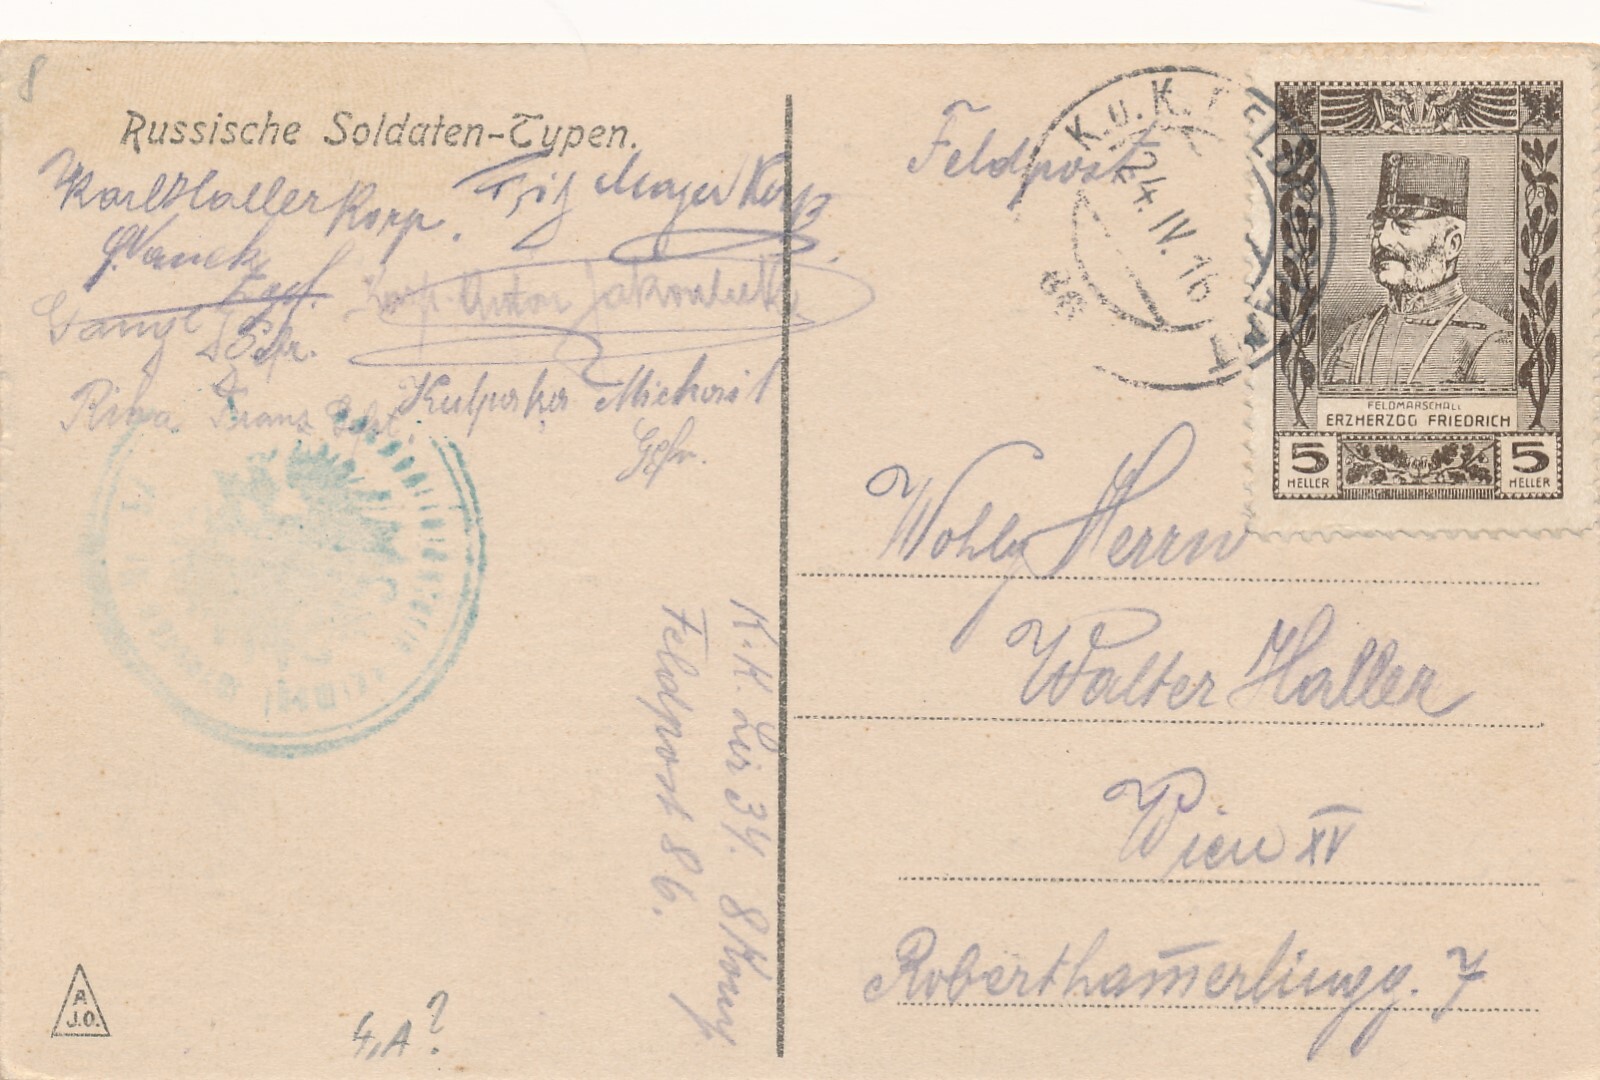 8
Russische Soldaten-Typen.
Karl Haller Korp. Fritz Mayer Korp.
Vanek
Zgsf.
Korp. Anton
Gfr.
Riwa Franz Gefr.
Gefr.
K.K. Lir 34. 8/Komp
Feldpost 86.
A
J.O.
4,A?
Feldpost
K.u.K. FELDPOSTAMT
24.IV.16
86
FELDMARSCHALL
ERZHERZOG FRIEDRICH
5 HELLER 5 HELLER
Wohlg Herrn
Walter Haller
Wien XV
Roberthamerlingg. 7